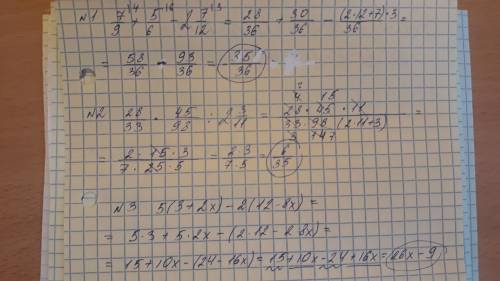 №1 7/9 \4 + 5/6 \6 - 2 7/12 \3 = 28/36 + 30/36 - (2·12+7)·3/36 =
= 58/36 - 93/36 = 35/36
№2 28/33 · 45/98 : 2 3/11 = 28 · 45 · 11 / 33 · 98 (2·11+3) =
= 2·15·3 / 7·25·5 = 2·3/7·5 = 6/35
№3 5(3+2x) - 2(12-8x) =
= 5·3 + 5·2x - (2·12 - 2·8x) =
= 15+10x - (24-16x) = 15+10x-24+16x = 26x-9